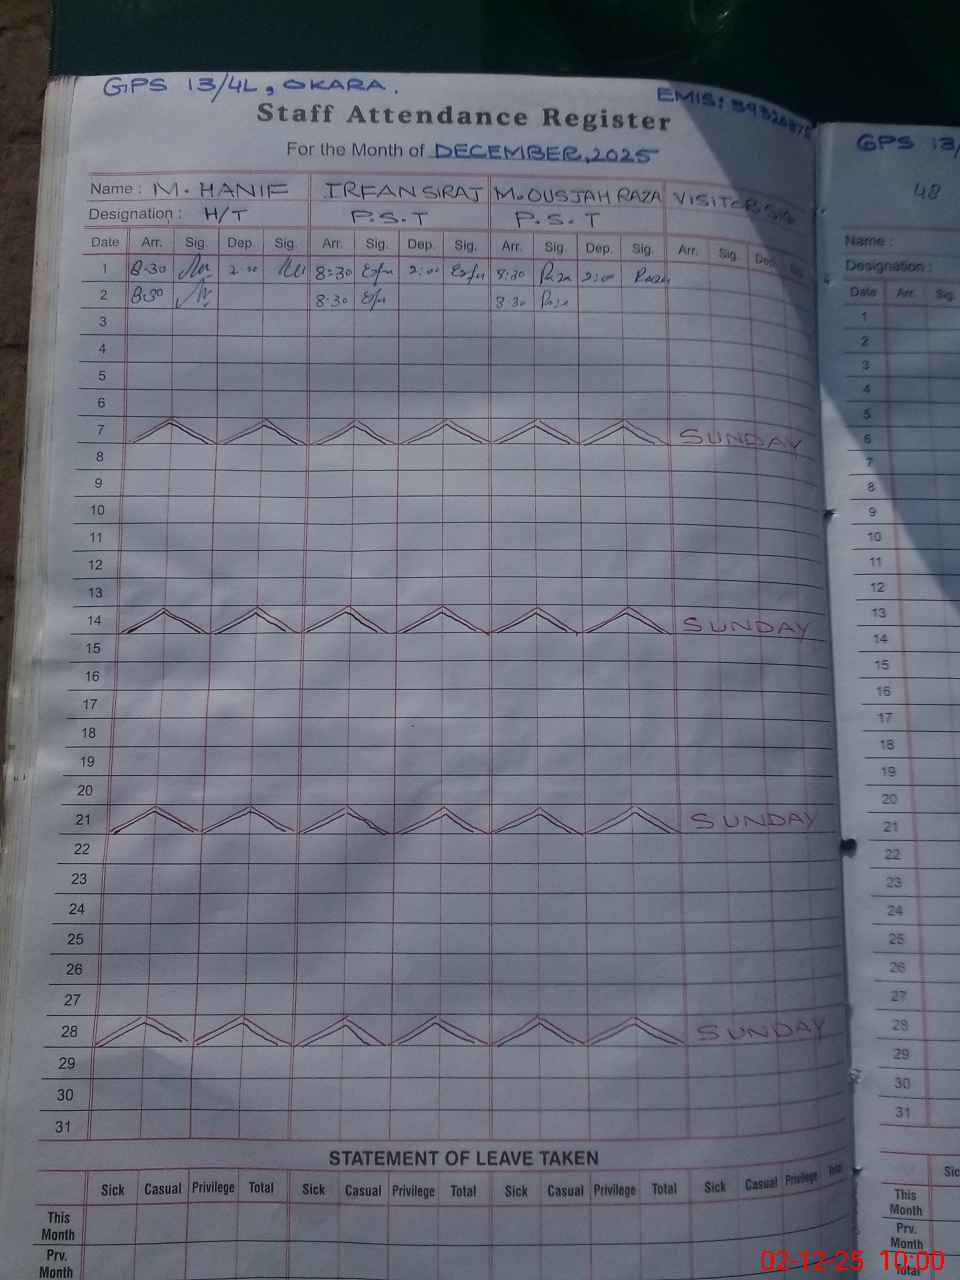 GPS 13/4L, OKARA.
EMIS: 39320875
Staff Attendance Register
For the Month of DECEMBER, 2025
Name : M. HANIF IRFAN SIRAJ M. OUSJAH RAZA VISITOR
Designation : H/T P.S.T P.S.T
Date Arr. Sig. Dep. Sig. Arr. Sig. Dep. Sig. Arr. Sig. Dep. Sig. Arr. Sig. Dep. Sig.
1 8-30 2:00 8:30 2:00 8:30 Raza 2:00 Raza
2 8:30 8:30 8:30 Raza
3
4
5
6
7 SUNDAY
8
9
10
11
12
13
14 SUNDAY
15
16
17
18
19
20
21 SUNDAY
22
23
24
25
26
27
28 SUNDAY
29
30
31
STATEMENT OF LEAVE TAKEN
Sick Casual Privilege Total Sick Casual Privilege Total Sick Casual Privilege Total Sick Casual Privilege Total
This Month
Prv. Month
GPS 13/
48
Name :
Designation :
Date Arr. Sig.
1
2
3
4
5
6
7
8
9
10
11
12
13
14
15
16
17
18
19
20
21
22
23
24
25
26
27
28
29
30
31
Sic
This Month
Prv. Month
Total
02-12-25 10:00